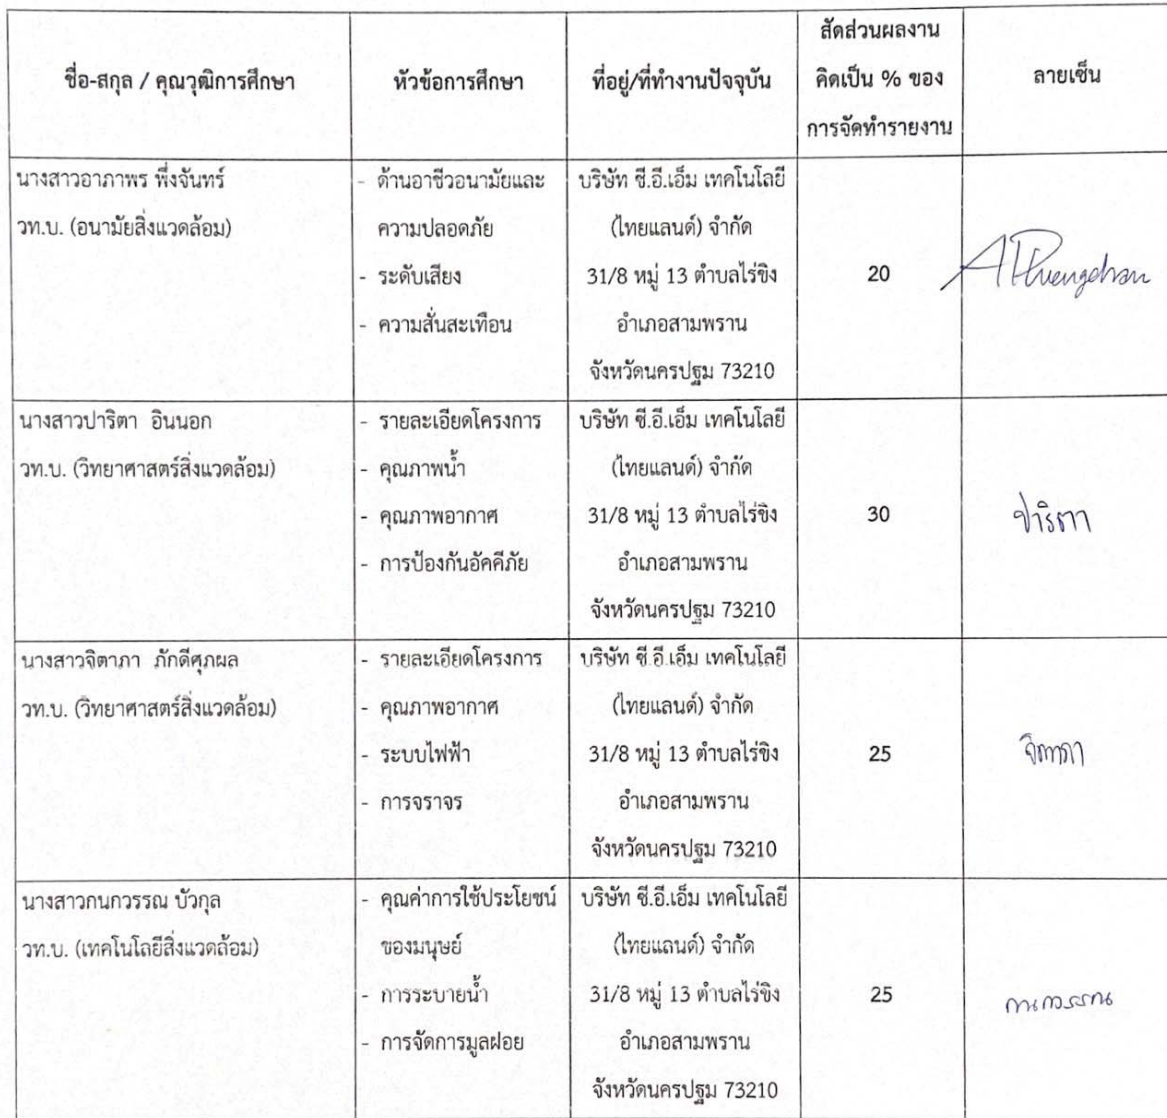 ชื่อ-สกุล / คุณวุฒิการศึกษา
หัวข้อการศึกษา
ที่อยู่/ที่ทำงานปัจจุบัน
สัดส่วนผลงาน
คิดเป็น % ของ
การจัดทำรายงาน
ลายเซ็น
นางสาวอาภาพร พึ่งจันทร์
วท.บ. (อนามัยสิ่งแวดล้อม)
- ด้านอาชีวอนามัยและ
ความปลอดภัย
- ระดับเสียง
- ความสั่นสะเทือน
บริษัท ซี.อี.เอ็ม เทคโนโลยี
(ไทยแลนด์) จำกัด
31/8 หมู่ 13 ตำบลไร่ขิง
อำเภอสามพราน
จังหวัดนครปฐม 73210
20
นางสาวปาริตา อินนอก
วท.บ. (วิทยาศาสตร์สิ่งแวดล้อม)
- รายละเอียดโครงการ
- คุณภาพน้ำ
- คุณภาพอากาศ
- การป้องกันอัคคีภัย
บริษัท ซี.อี.เอ็ม เทคโนโลยี
(ไทยแลนด์) จำกัด
31/8 หมู่ 13 ตำบลไร่ขิง
อำเภอสามพราน
จังหวัดนครปฐม 73210
30
ปาริตา
นางสาวจิตาภา ภักดีศุภผล
วท.บ. (วิทยาศาสตร์สิ่งแวดล้อม)
- รายละเอียดโครงการ
- คุณภาพอากาศ
- ระบบไฟฟ้า
- การจราจร
บริษัท ซี.อี.เอ็ม เทคโนโลยี
(ไทยแลนด์) จำกัด
31/8 หมู่ 13 ตำบลไร่ขิง
อำเภอสามพราน
จังหวัดนครปฐม 73210
25
จิตาภา
นางสาวกนกวรรณ บัวกุล
วท.บ. (เทคโนโลยีสิ่งแวดล้อม)
- คุณค่าการใช้ประโยชน์
ของมนุษย์
- การระบายน้ำ
- การจัดการมูลฝอย
บริษัท ซี.อี.เอ็ม เทคโนโลยี
(ไทยแลนด์) จำกัด
31/8 หมู่ 13 ตำบลไร่ขิง
อำเภอสามพราน
จังหวัดนครปฐม 73210
25
กนกวรรณ